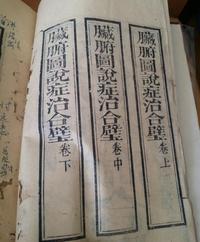 臟腑圖說症治合璧卷上
臟腑圖說症治合璧卷中
臟腑圖說症治合璧卷下